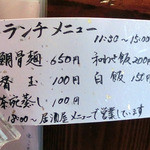 ランチメニュー
11:30〜15:00
鯛骨麺 650円
和わさ飯 200円
替玉 100円
白飯 150円
茶碗蒸し 100円
18:00〜居酒屋メニューで営業しています